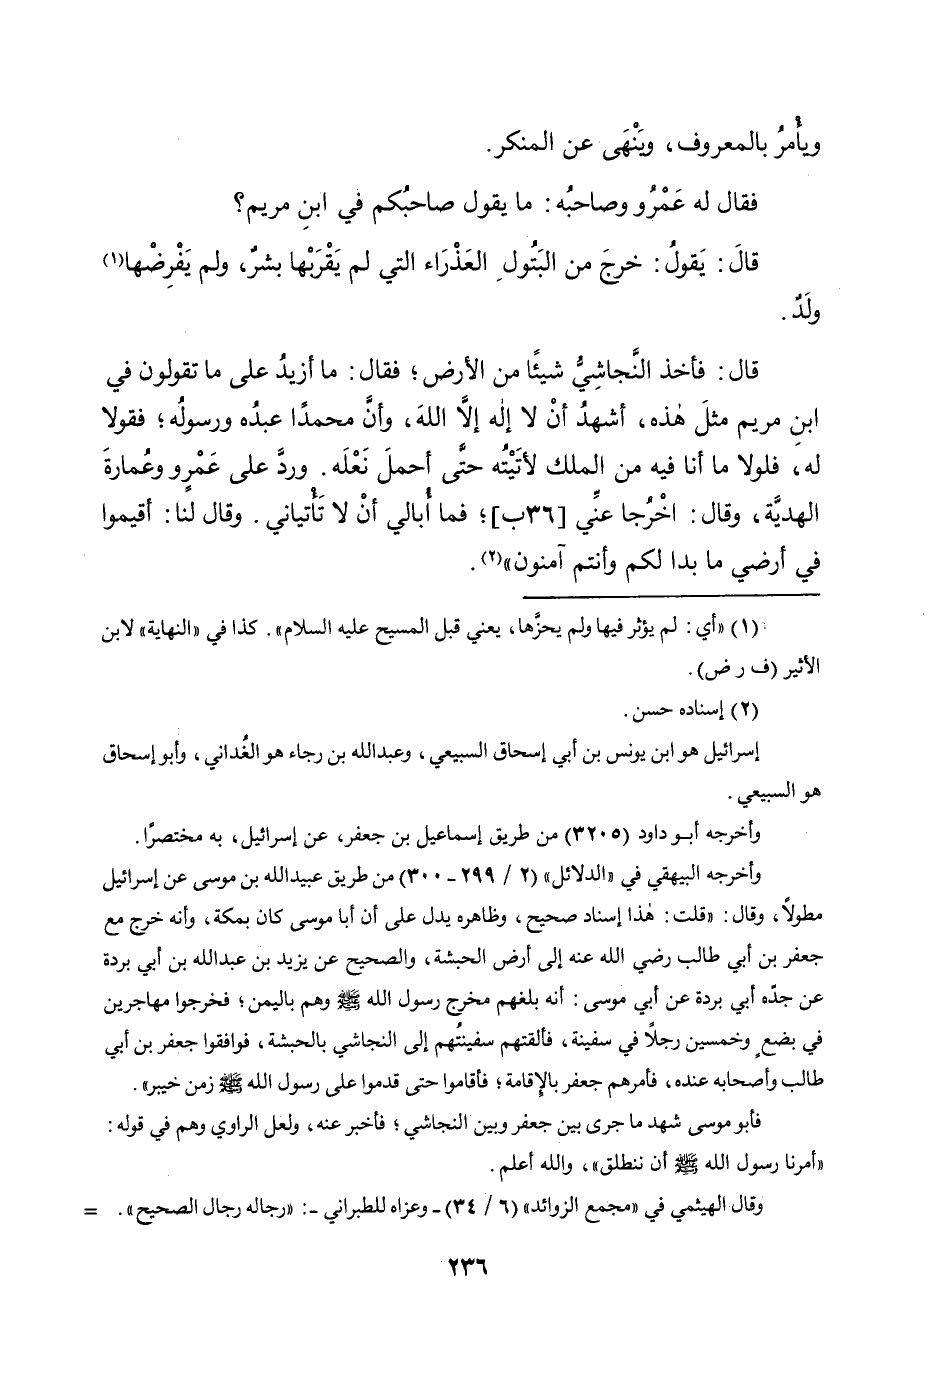 ويأْمرُ بالمعروف، ويَنْهَى عن المنكر.
فقال له عَمْرُو وصاحبُه: ما يقول صاحبُكم في ابنِ مريم؟
قالَ: يَقولُ: خرجَ من البَتُولِ العَذْرَاء التي لم يَقْرَبْها بشرٌ، ولم يَفْرِضْها(١)
ولَدٌ.
قال: فأخذ النَّجاشِيُّ شيئًا من الأرض؛ فقال: ما أزيدُ على ما تقولون في
ابنِ مريم مثلَ هٰذه، أشهدُ أنْ لا إلٰه إلَّا اللهَ، وأنَّ محمدًا عبدُه ورسولُه؛ فقولا
له، فلولا ما أنا فيه من الملك لأتَيْتُه حتَّى أحملَ نَعْلَه. وردَّ على عَمْرٍو وعُمارةَ
الهديَّة، وقال: اخْرُجا عنِّي [٣٦ب]؛ فما أُبالي أنْ لا تَأْتياني. وقال لنا: أقيموا
في أرضي ما بدا لكم وأنتم آمنون»(٢).
(١) «أي: لم يؤثر فيها ولم يحزَّها، يعني قبل المسيح عليه السلام». كذا في «النهاية» لابن
الأثير (ف ر ض).
(٢) إسناده حسن.
إسرائيل هو ابن يونس بن أبي إسحاق السبيعي، وعبدالله بن رجاء هو الغُداني، وأبو إسحاق
هو السبيعي.
وأخرجه أبو داود (٣٢٠٥) من طريق إسماعيل بن جعفر، عن إسرائيل، به مختصرًا.
وأخرجه البيهقي في «الدلائل» (٢ / ٢٩٩ ـ ٣٠٠) من طريق عبيدالله بن موسى عن إسرائيل
مطولًا، وقال: «قلت: هٰذا إسناد صحيح، وظاهره يدل على أن أبا موسى كان بمكة، وأنه خرج مع
جعفر بن أبي طالب رضي الله عنه إلى أرض الحبشة، والصحيح عن يزيد بن عبدالله بن أبي بردة
عن جدّه أبي بردة عن أبي موسى: أنه بلغهم مخرج رسول الله ﷺ وهم باليمن؛ فخرجوا مهاجرين
في بضعٍ وخمسين رجلًا في سفينة، فألقتهم سفينتُهم إلى النجاشي بالحبشة، فوافقوا جعفر بن أبي
طالب وأصحابه عنده، فأمرهم جعفر بالإقامة؛ فأقاموا حتى قدموا على رسول الله ﷺ زمن خيبر».
فأبو موسى شهد ما جرى بين جعفر وبين النجاشي؛ فأخبر عنه، ولعل الراوي وهم في قوله:
«أمرنا رسول الله ﷺ أن ننطلق»، والله أعلم.
وقال الهيثمي في «مجمع الزوائد» (٦ / ٣٤) ـ وعزاه للطبراني ـ: «رجاله رجال الصحيح». =
٢٣٦